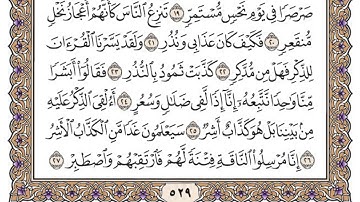 صَرْصَرًا فِي يَوْمِ نَحْسٍ مُّسْتَمِرٍّ ١٩ تَنزِعُ النَّاسَ كَأَنَّهُمْ أَعْجَازُ نَخْلٍ
مُّنقَعِرٍ ٢٠ فَكَيْفَ كَانَ عَذَابِي وَنُذُرِ ٢١ وَلَقَدْ يَسَّرْنَا الْقُرْءَانَ
لِلذِّكْرِ فَهَلْ مِن مُّدَّكِرٍ ٢٢ كَذَّبَتْ ثَمُودُ بِالنُّذُرِ ٢٣ فَقَالُوا أَبَشَرًا
مِّنَّا وَاحِدًا نَّتَّبِعُهُ إِنَّا إِذًا لَّفِي ضَلَالٍ وَسُعُرٍ ٢٤ أَءُلْقِيَ الذِّكْرُ عَلَيْهِ
مِن بَيْنِنَا بَلْ هُوَ كَذَّابٌ أَشِرٌ ٢٥ سَيَعْلَمُونَ غَدًا مَّنِ الْكَذَّابُ الْأَشِرُ
٢٦ إِنَّا مُرْسِلُوا النَّاقَةِ فِتْنَةً لَّهُمْ فَارْتَقِبْهُمْ وَاصْطَبِرْ ٢٧
٥٢٩